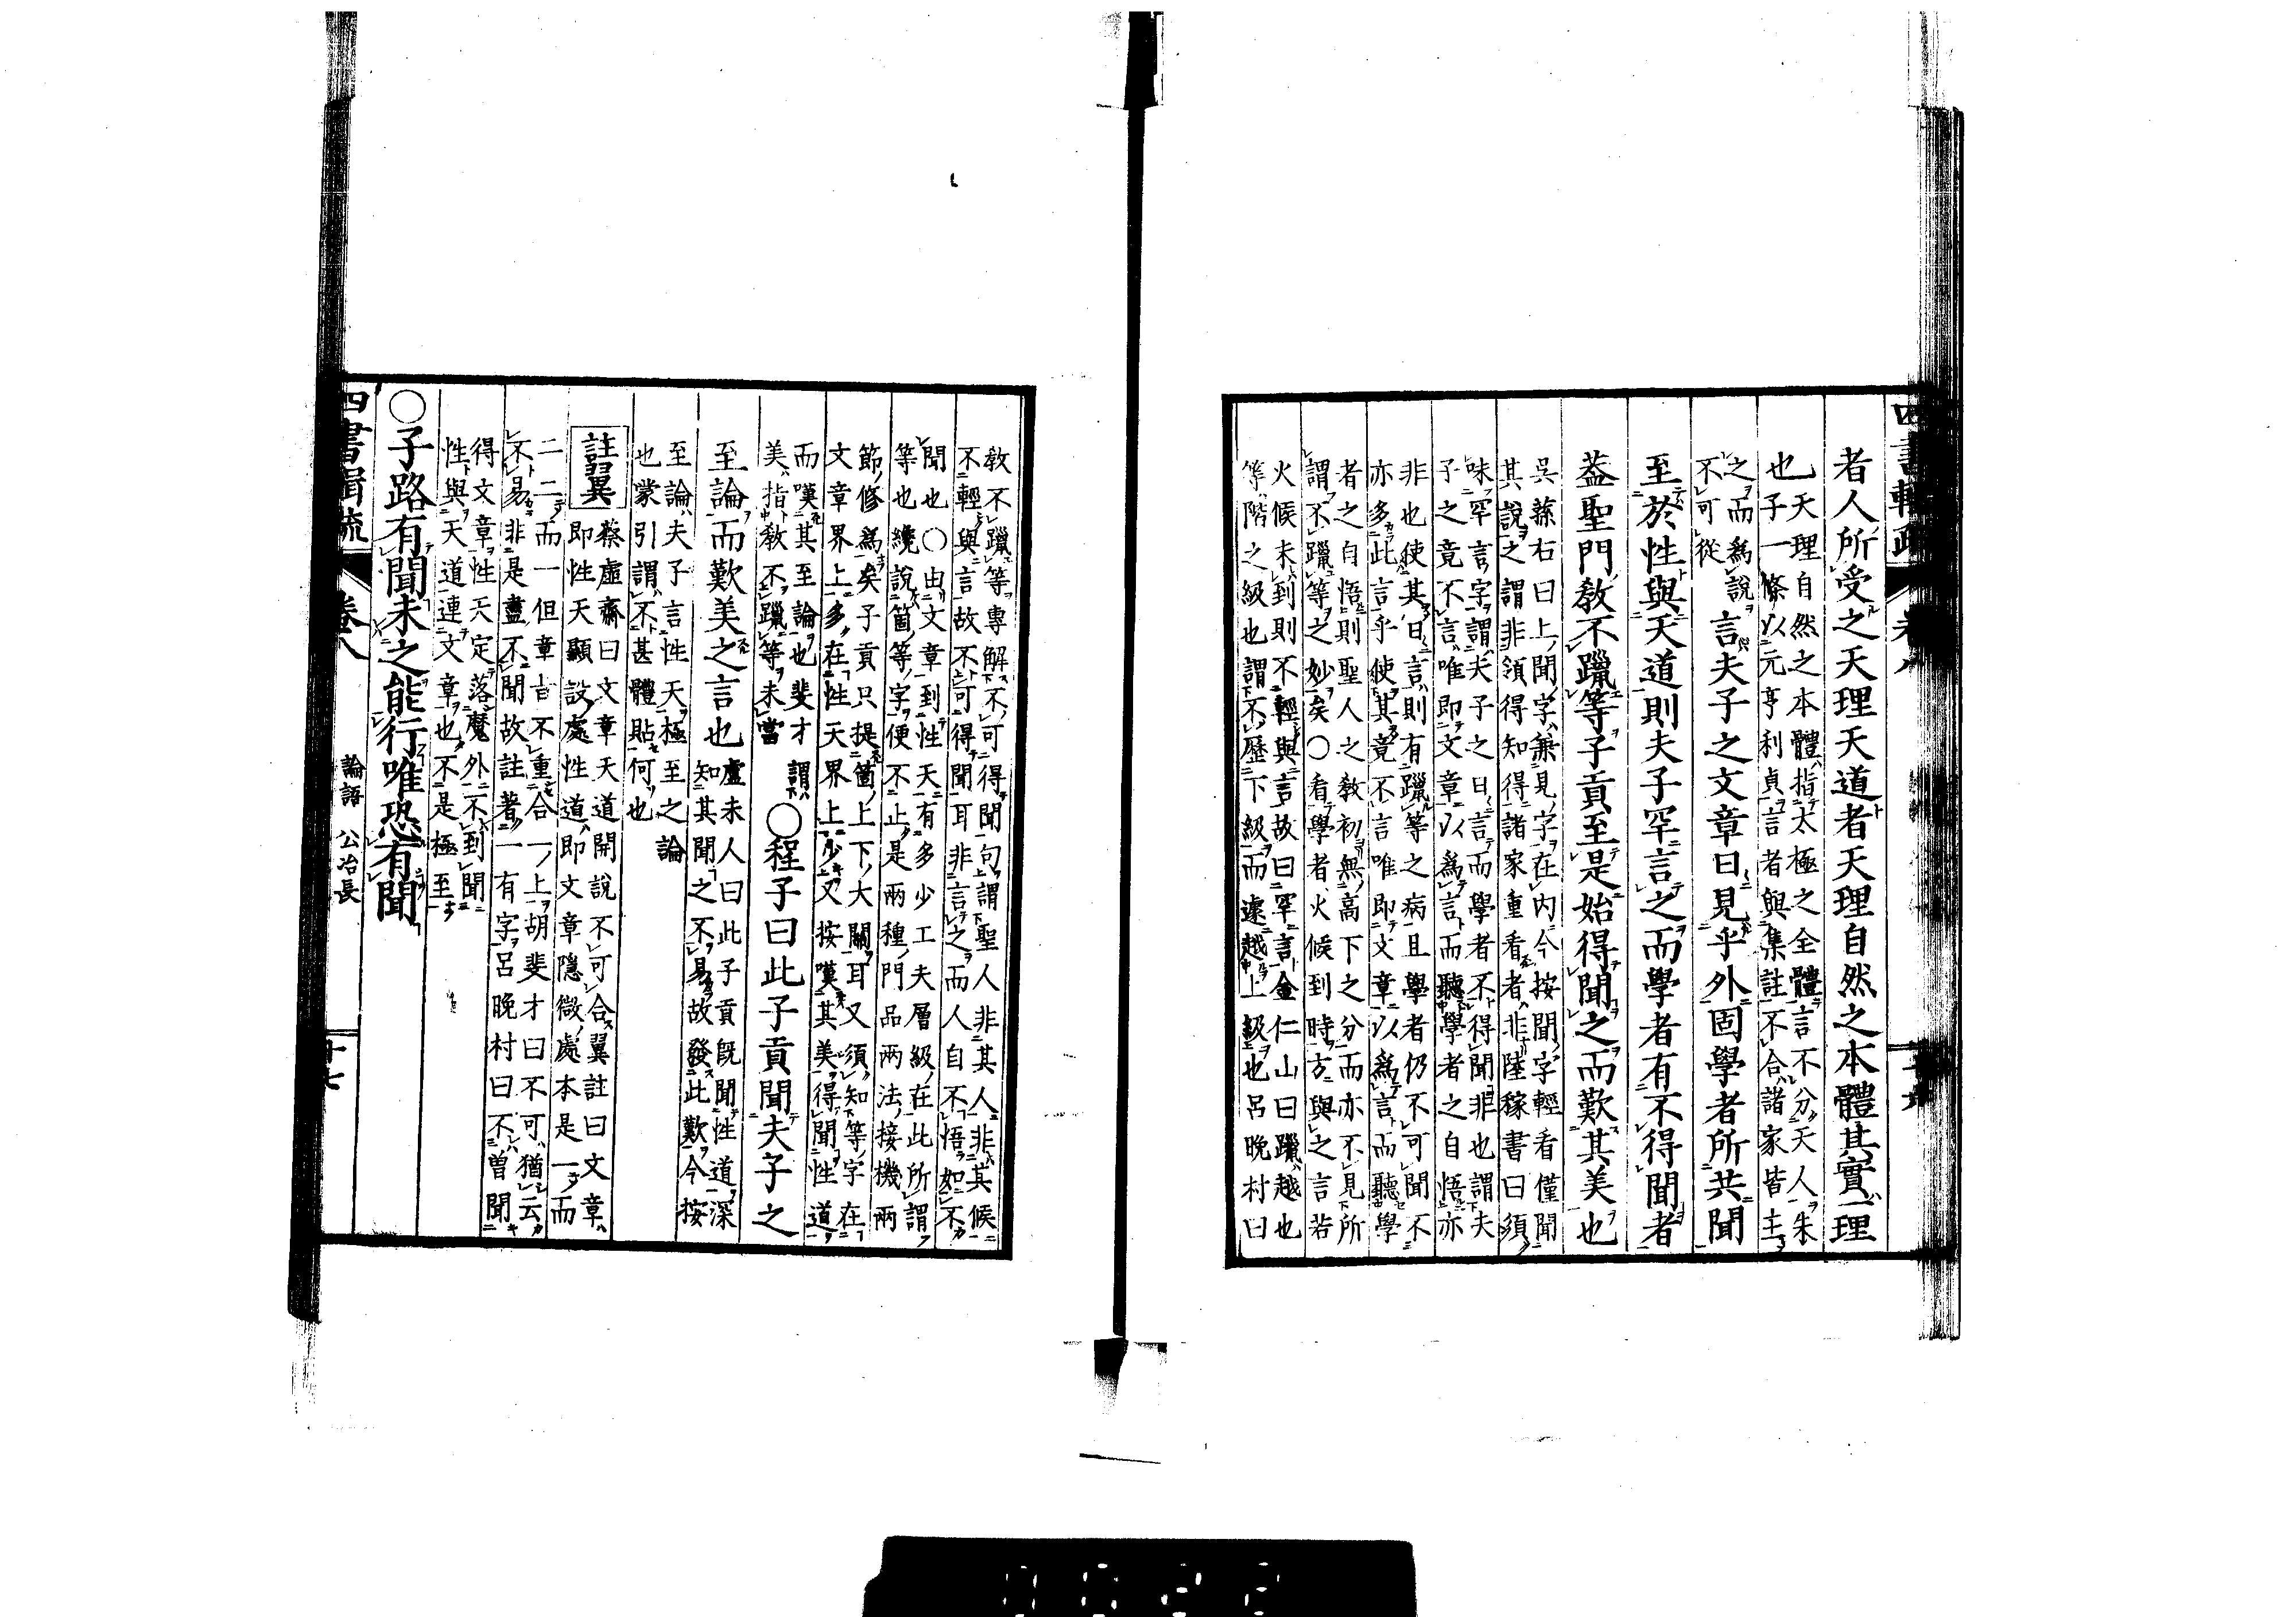 者人所受之天理天道者天理自然之本體其實一理
也天理自然之本體指太極之全體言不分天人朱
子一條以元亨利貞言者與集註不合諸家皆主
之而爲說
不可從
言夫子之文章日見乎外固學者所共聞
至於性與天道則夫子罕言之而學者有不得聞者
葢聖門敎不躐等子貢至是始得聞之而歎其美也
吳蓀右曰上聞字兼見字在內今按聞字輕看僅聞
其說之謂非領得知得諸家重看者非陸稼書曰須
味罕言字謂夫子之日言而學者不得聞非也謂夫
子之竟不言唯即文章以爲言而聽學者之自悟亦
非也使其日言則有躐等之病且學者仍不可聞不
亦多此言乎使其竟不言唯即文章以爲言而聽學
者之自悟則聖人之敎初無高下之分而亦不見所
謂不躐等之妙矣○看學者火候到時方與之言若
火候未到則不輕與言故曰罕言金仁山曰躐越也
等階之級也謂不歷下級而遽越上級也呂晩村曰
敎不躐等專解不可得聞一句謂聖人非其人非其候
不輕與言故不可得聞耳非言之而人自不悟如不
聞也○由文章到性天有多少工夫層級在此所謂
等也纔說箇等字便不止是兩種門品兩法接機兩
節修爲矣子貢只提箇上下大關耳又須知等字在
文章界上多在性天界上少又按嘆其美得聞性道
而嘆其至論也斐才謂
美指敎不躐等未當
○程子曰此子貢聞夫子之
至論而歎美之言也
盧未人曰此子貢旣聞性道深
知其聞之不易故發此歎今按
至論夫子言性天極至之論
也蒙引謂不甚體貼何也
註翼
蔡虛齋曰文章天道開說不可合翼註曰文章
即性天顯設處性道即文章隱微處本是一而
二二而一但章旨不重合一上胡斐才曰不可猶云
不易非是盡不聞故註著一有字呂晩村曰不曾聞
得文章性天定落魔外不到聞
性與天道連文章也不是極至
○子路有聞未之能行唯恐有聞
四書輯疏
卷八
論語
公冶長
十七